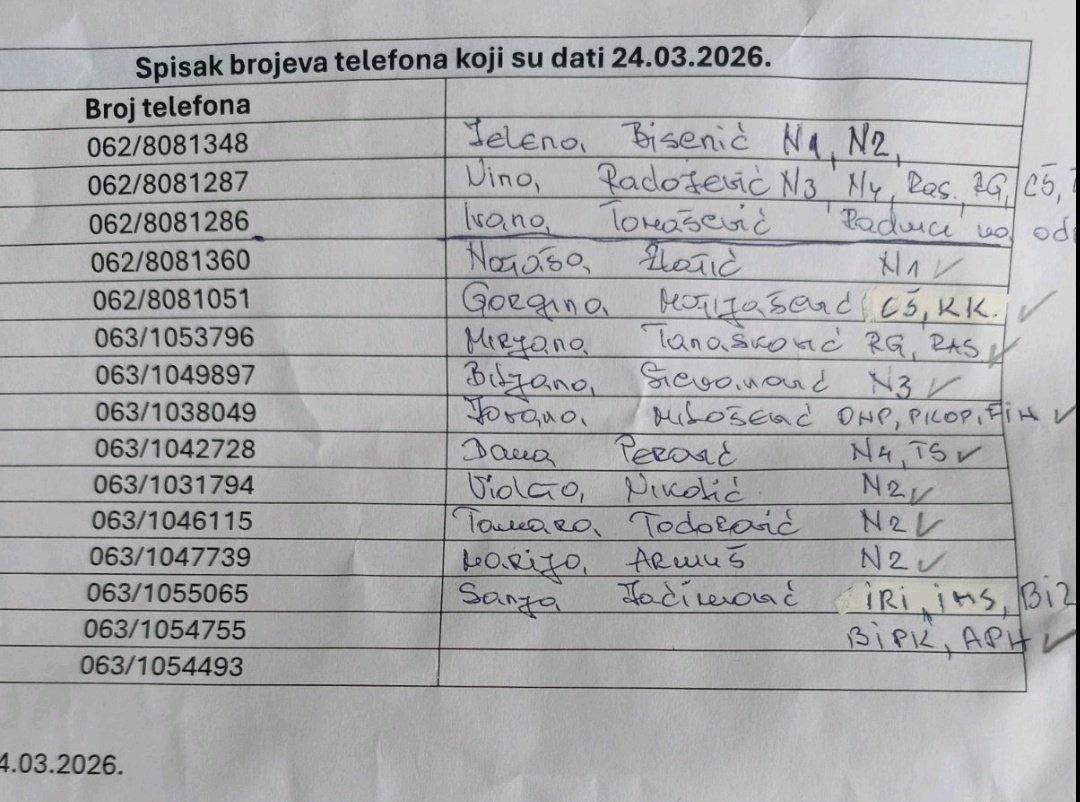 Spisak brojeva telefona koji su dati 24.03.2026.
Broj telefona
062/8081348 Jelena Bisenić N1, N2,
062/8081287 Nina Radojević N3, N4, Ras. RG, CŠ,
062/8081286 Ivana Tomašević Radnici na
062/8081360 Nataša Zlatić N1 ✓
062/8081051 Gorgina Matijašević CŠ, KK. ✓
063/1053796 Mirjana Tanasković RG, RAS ✓
063/1049897 Biljana Stevanović N3 ✓
063/1038049 Jovana Milošević DHP, PIKOP, FIH ✓
063/1042728 Dana Perović N4, TS ✓
063/1031794 Violeta Nikolić N2 ✓
063/1046115 Tamara Todorović N2 ✓
063/1047739 Marija Armuš N2 ✓
063/1055065 Sanja Jaćimović IRI, IMS, BIZ
063/1054755 BIPK, APH ✓
063/1054493
4.03.2026.